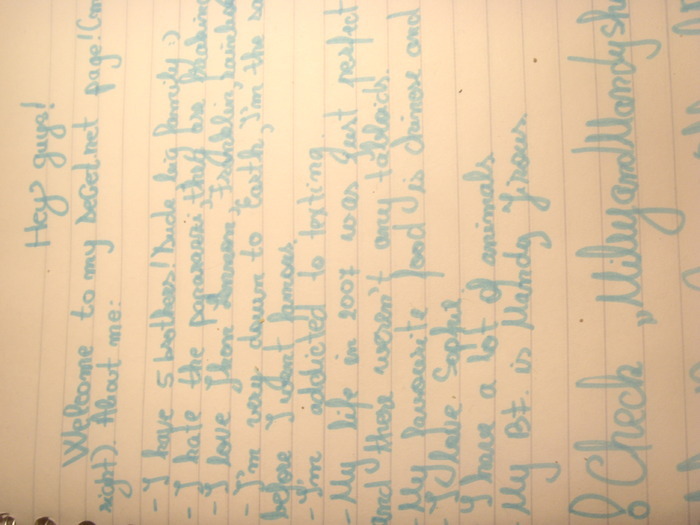 Hey guys!
Welcome to my secret.net page! (
right). About me:
- I have 5 brothers! Dude big family:)
- I hate the paparazzi they are
- I love Jhon Lennon,
- I'm very "down to Earth", I'm the
before I went famous.
- I'm addicted to texting
- My life in 2007 was just perfect
and there weren't any tabloids.
- My favourite food is chinese and
- I love Sophie
I have a lot of animals
My Bf. is Mandy Jirous.
! Check "MileyandMandysh